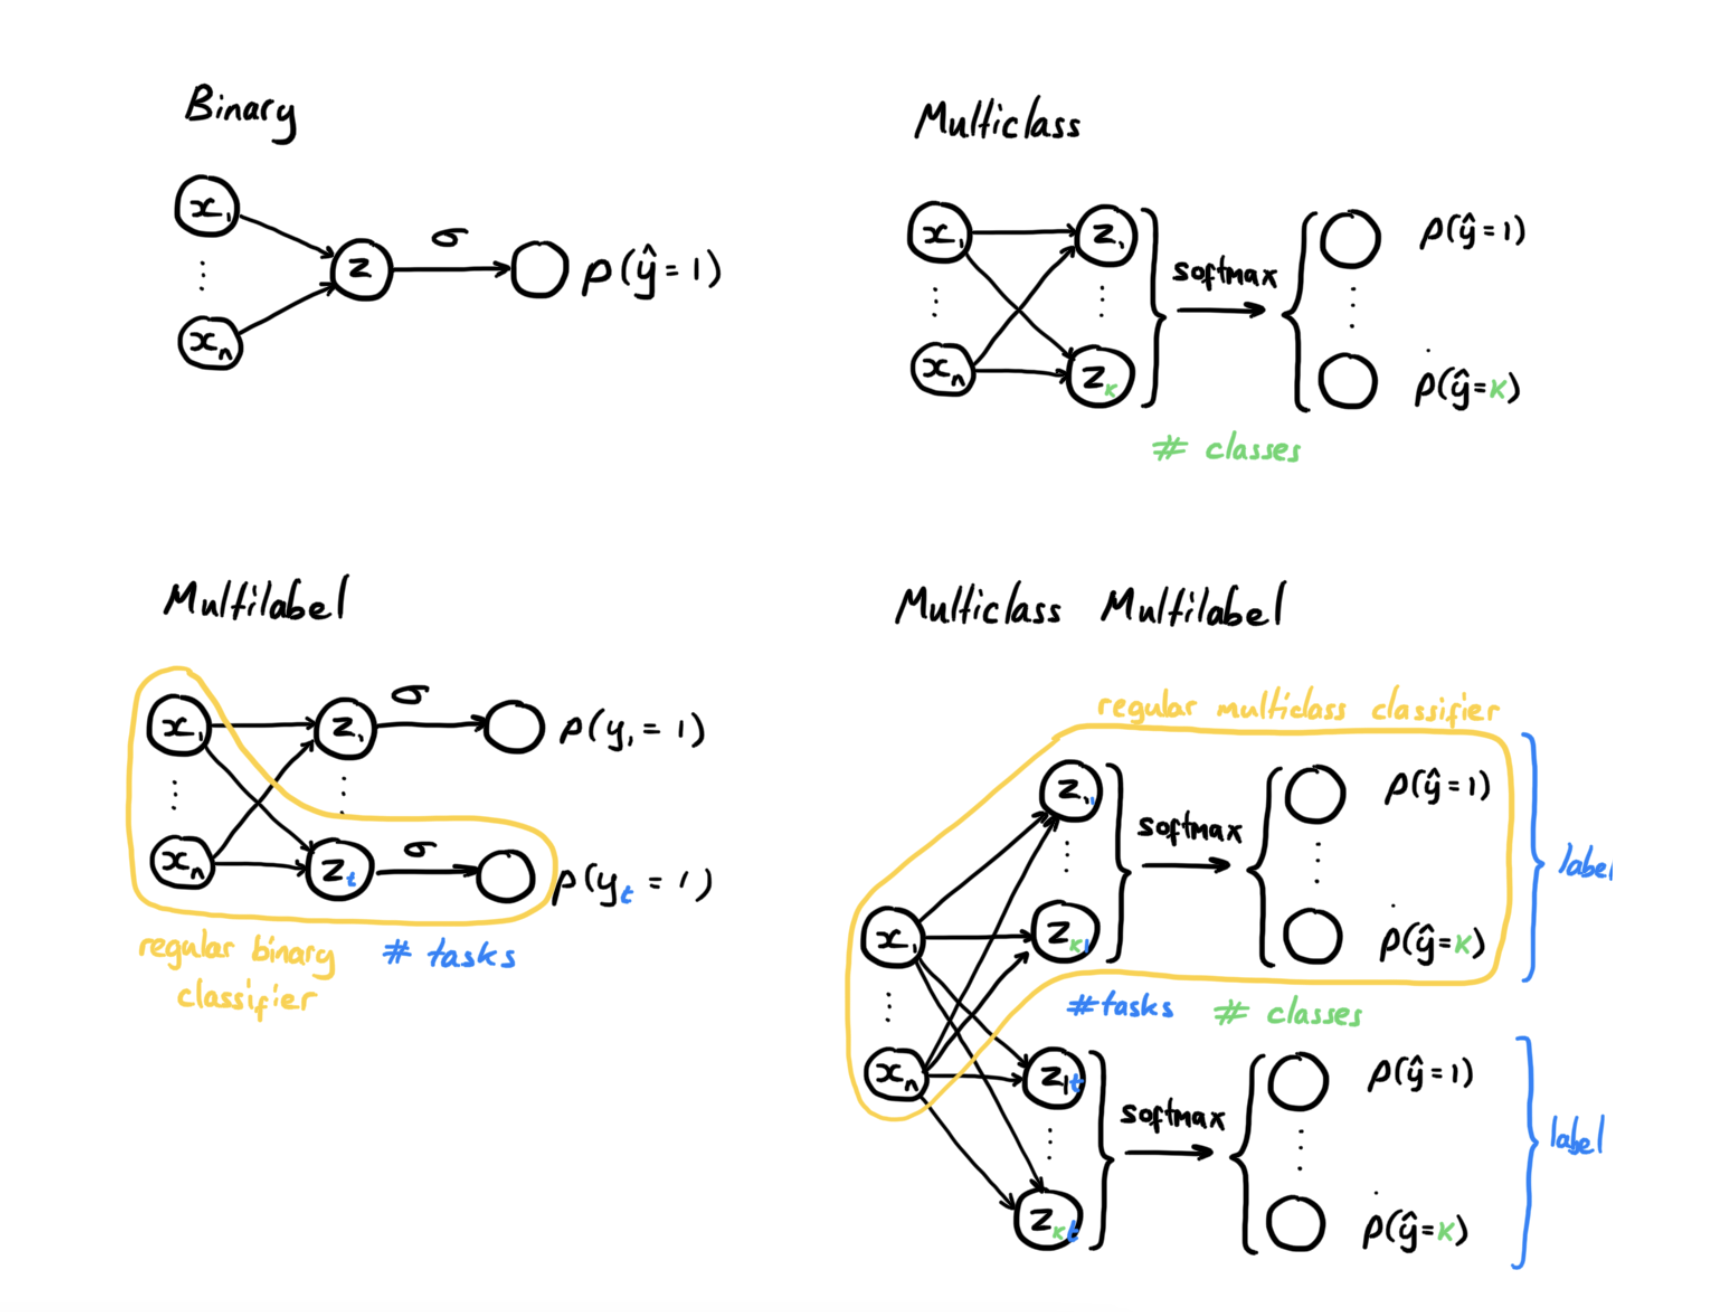 Binary
x₁
⋮
xₙ
z
σ
p(ŷ = 1)
Multiclass
x₁
⋮
xₙ
z₁
⋮
z_K
softmax
p(ŷ = 1)
⋮
p(ŷ = K)
# classes
Multilabel
x₁
⋮
xₙ
z₁
⋮
z_t
σ
σ
p(y₁ = 1)
p(y_t = 1)
regular binary
classifier
# tasks
Multiclass Multilabel
regular multiclass classifier
x₁
⋮
xₙ
z₁₁
⋮
z_K1
softmax
p(ŷ = 1)
⋮
p(ŷ = K)
label
# tasks
# classes
z_1t
⋮
z_Kt
softmax
p(ŷ = 1)
⋮
p(ŷ = K)
label